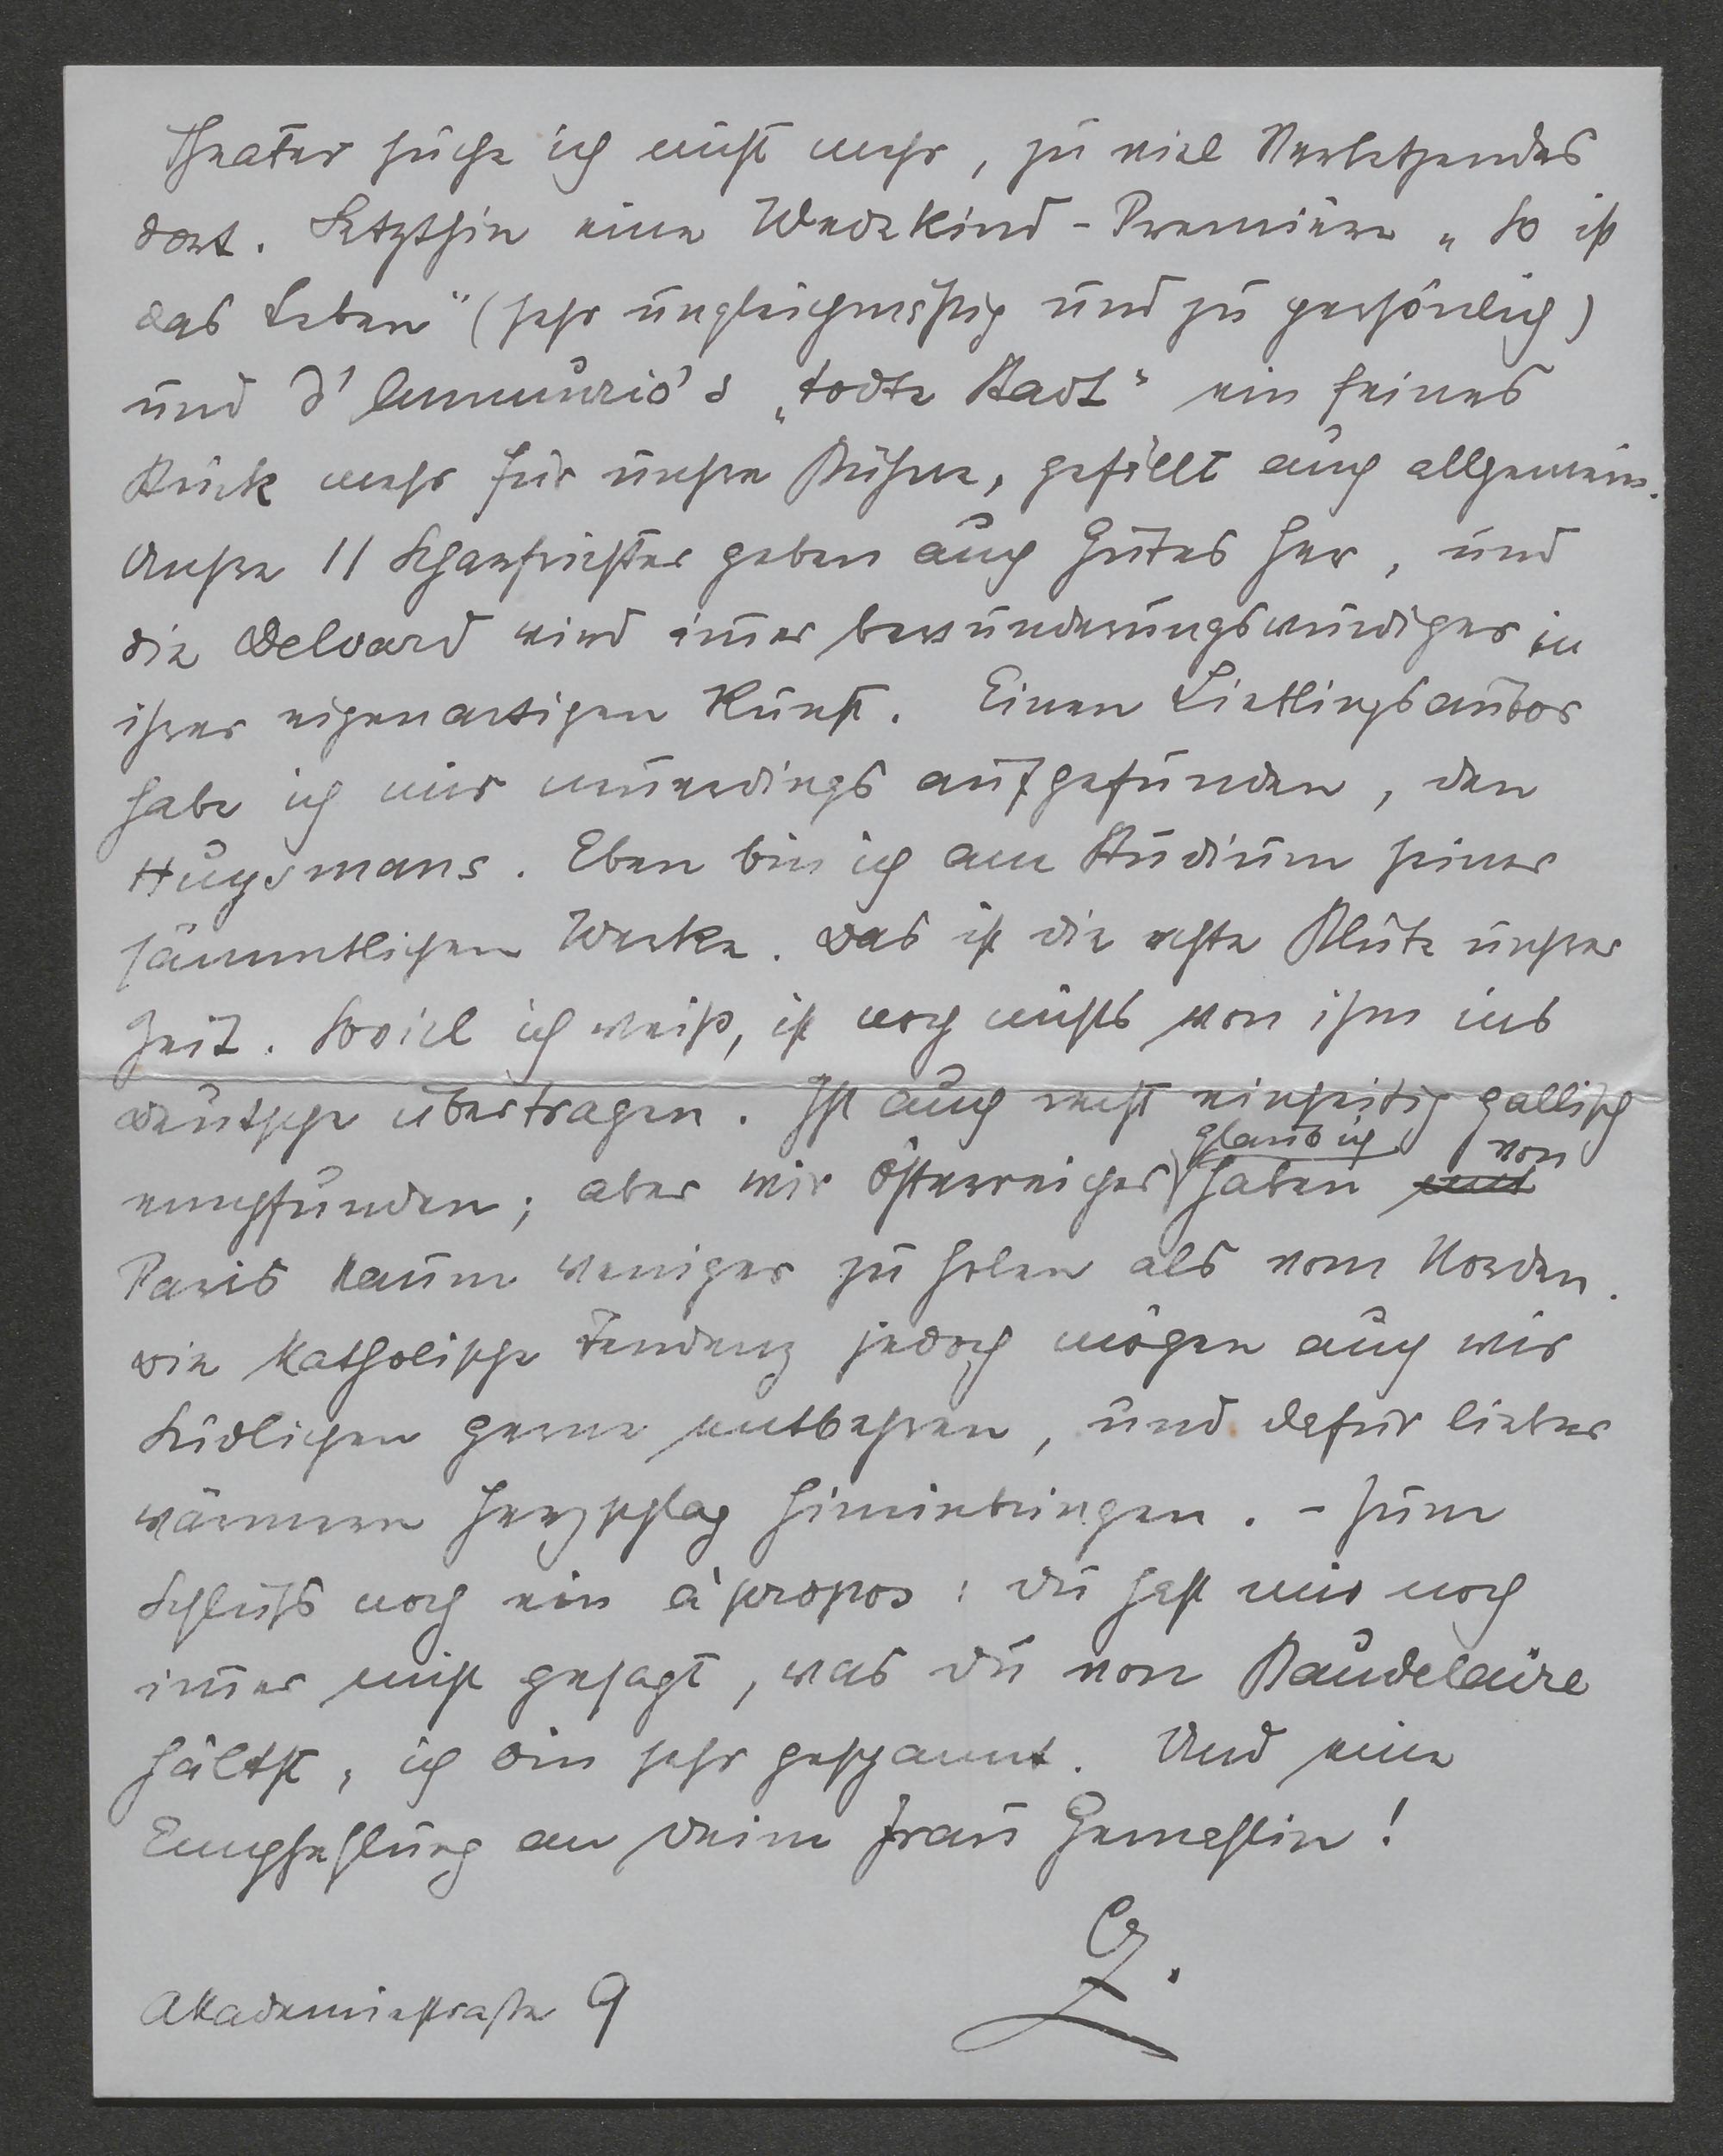 Theater suche ich nicht mehr, zu viel Verletzendes
dort. Letzthin eine Wedekind-Première „So ist
das Leben" (sehr ungleichmäßig und zu persönlich)
und d'Annunzio's „todte Stadt" ein feines
Stück mehr für unsre Bühne, gefällt auch allgemein.
Unsre 11 Scharfrichter geben auch Gutes her, und
die Delvard wird im̄er bewunderungswürdiger in
ihrer eigenartigen Kunst. Einen Lieblingsautor
habe ich mir neuerdings aufgefunden, den
Huysmans. Eben bin ich am Studium seiner
sämmtlichen Werke. Das ist die echte Blüte unsrer
Zeit. Soviel ich weiß, ist noch nichts von ihm ins
deutsche übertragen. Ist auch recht einseitig gallisch
empfunden; aber wir Österreicher glaub ich haben von
Paris kaum weniger zu holen als vom Norden.
Die katholische Tendenz jedoch mögen auch wir
Südlichen gerne entbehren, und dafür lieber
wärmeren Herzschlag hineinbringen. - Zum
Schluß noch ein à propos: Du hast mir noch
im̄er nicht gesagt, was Du von Baudelaire
hältst, ich bin sehr gespannt. Und eine
Empfehlung an Deine Frau Gemahlin!
Akademiestraße 9